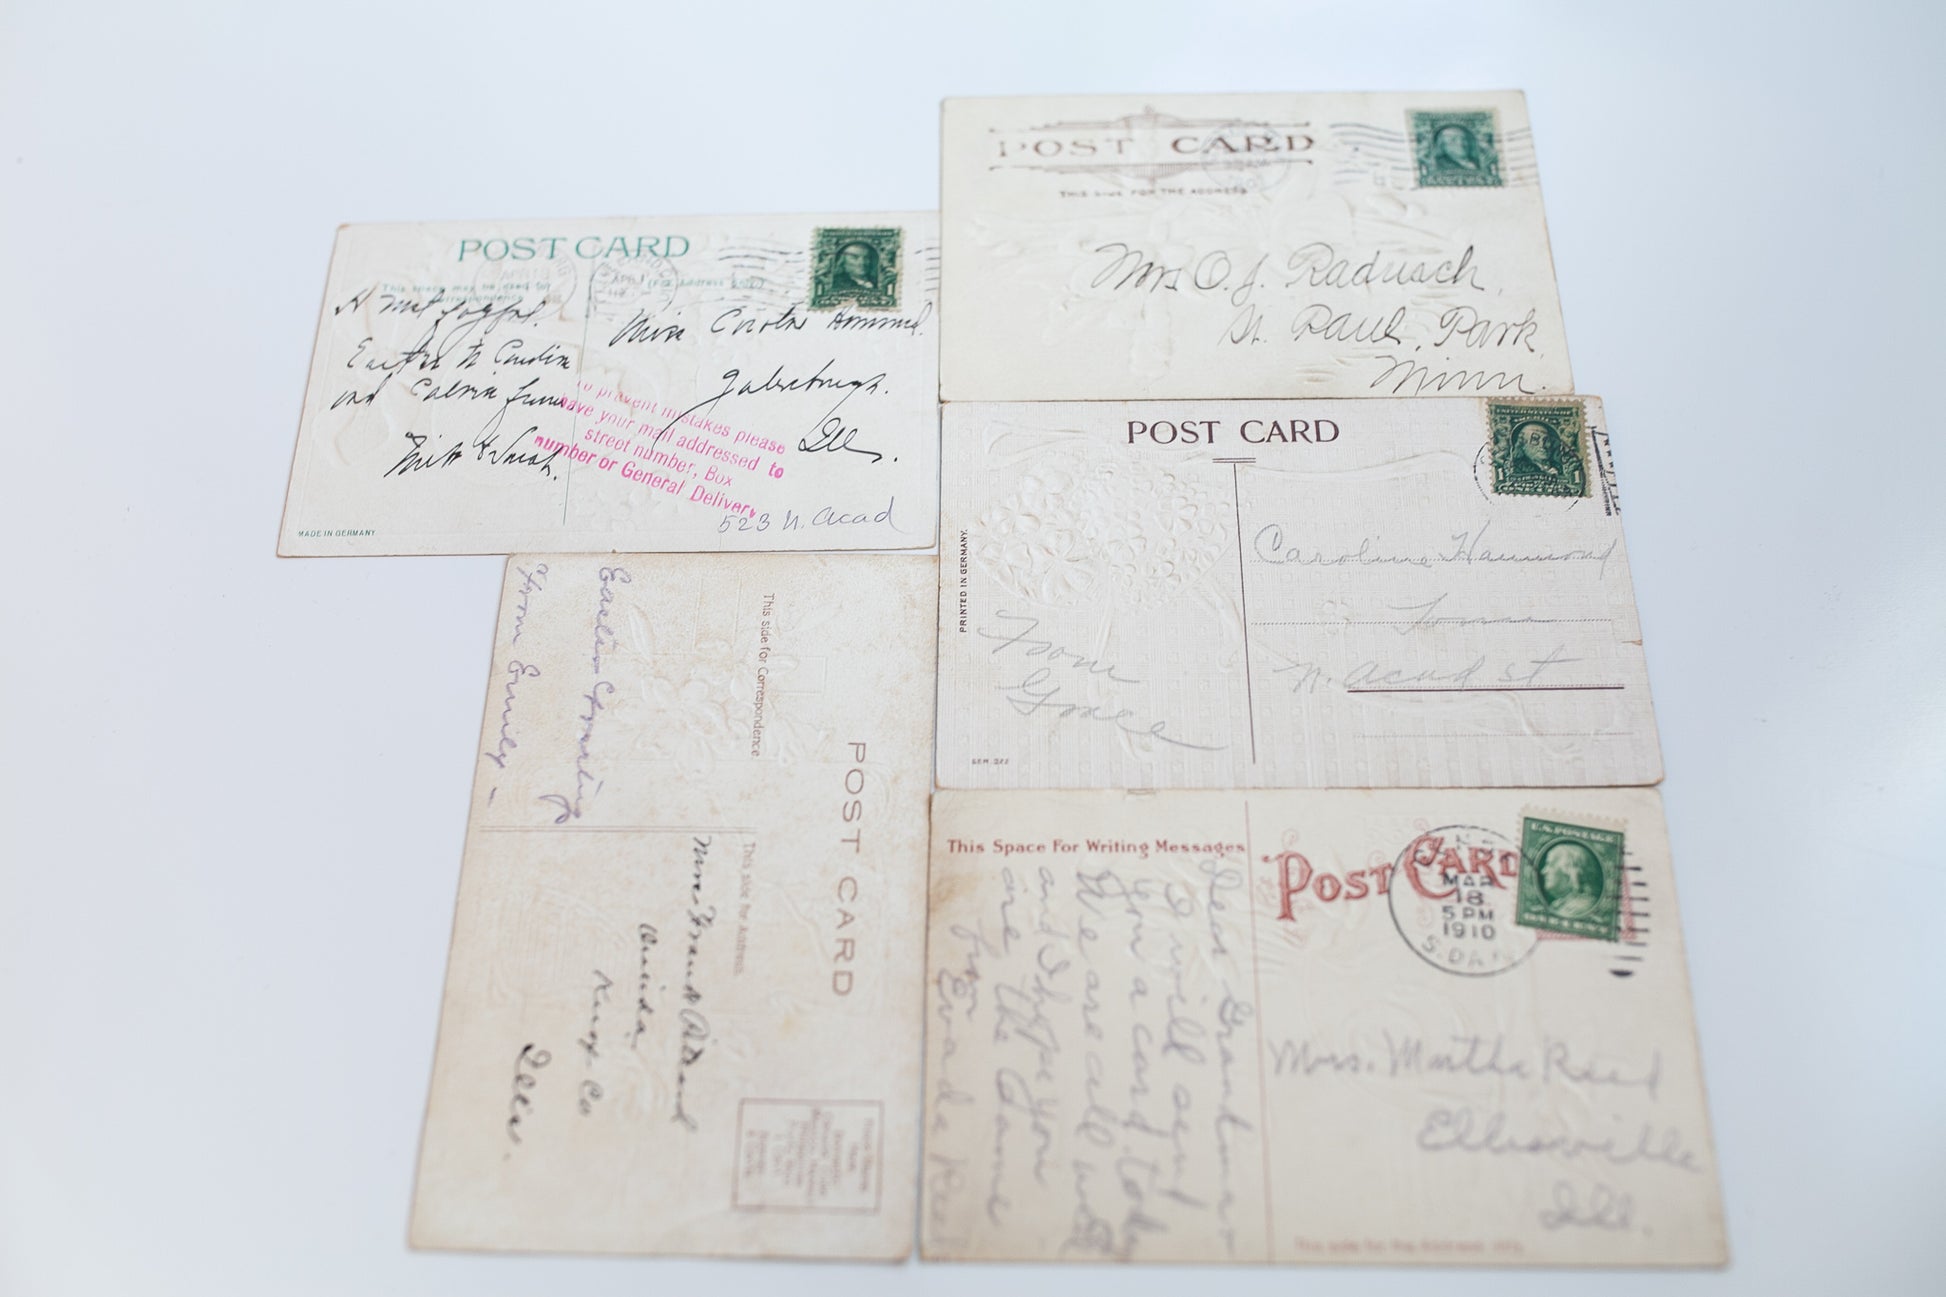 POST CARD
This space may be used for
correspondence
(For Address Only)
APR 1
A most joyful
Easter to Caroline
and Calvin from
Milt & Sarah.
Miss
Galesburgh.
Ill.
To prevent mistakes please
have your mail addressed to
street number, Box
number or General Delivery
523 N. Acad
MADE IN GERMANY
POST CARD
THIS SIDE FOR THE ADDRESS
Mrs O. J. Radusch,
St. Paul, Park,
Minn.
POST CARD
PRINTED IN GERMANY.
From
Grace
SER. 322
Caroline Hammond
Town
N. Acad st
This side for Correspondence.
Easter Greeting
From Emily –
POST CARD
This side for Address.
Mrs Frank
Ounda
Knox Co
Ills.
This Space For Writing Messages
POST CARD
MAR
18
5 PM
1910
S. DAK
U.S. POSTAGE
Dear Grandma
I will send
you a card today
We are all well
and I hope you
are the same
from Evada Reed
Mrs. Martha Reed
Ellisville
Ill.